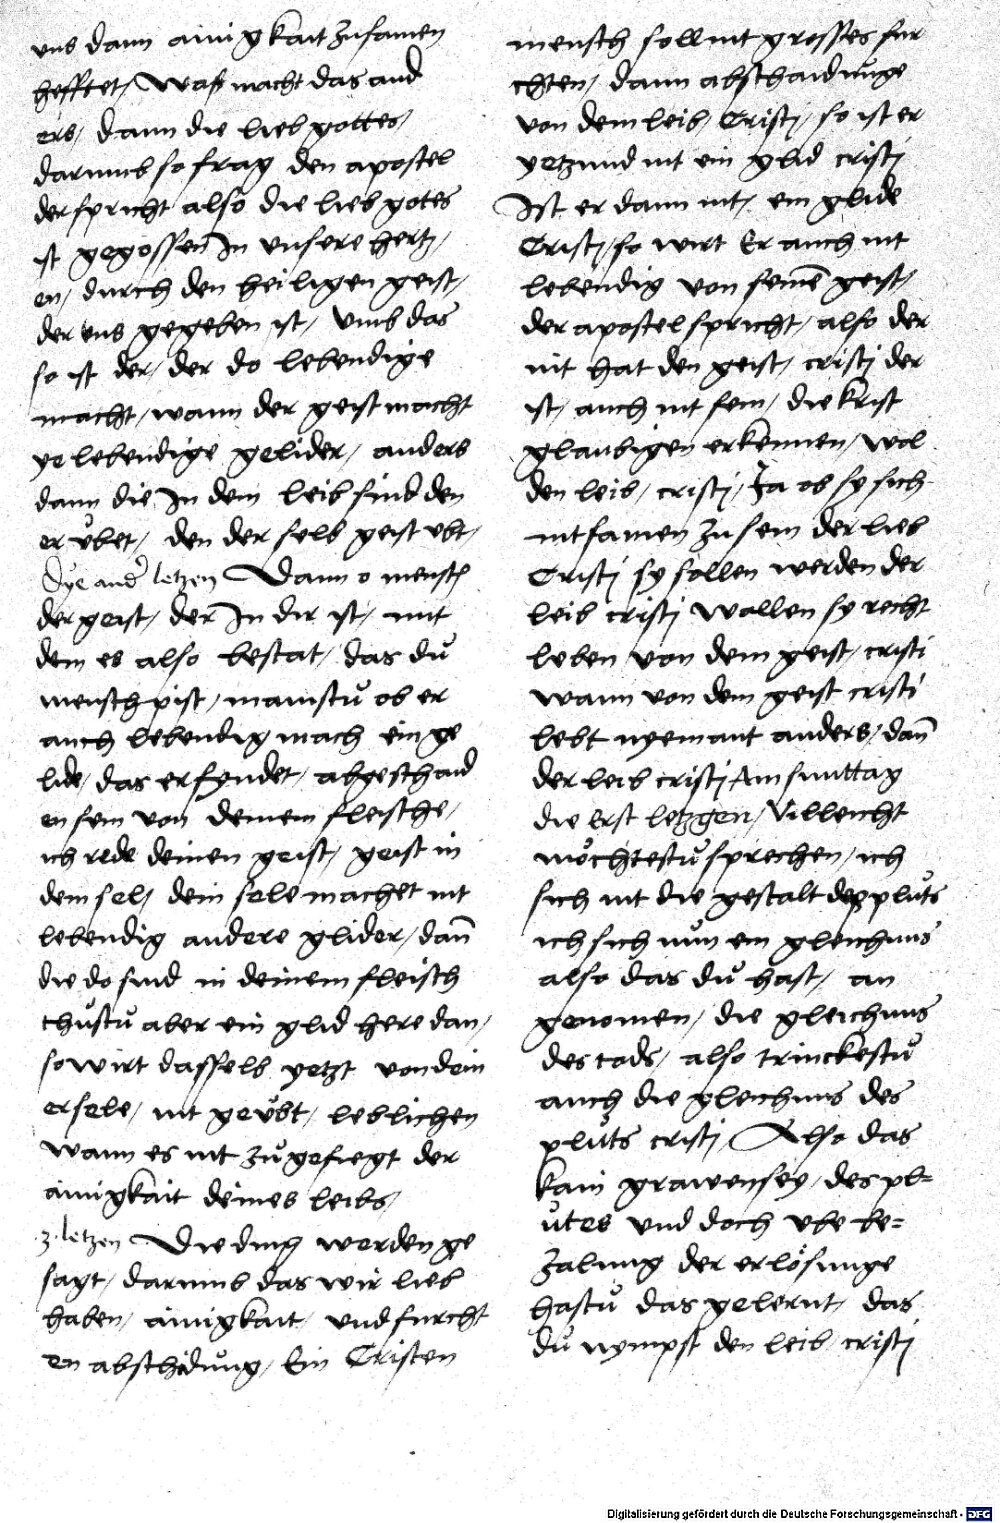 uns dann ainigkait zusamen
hefftet / Waß macht das and
ers / dann die lieb gottes /
darumb so frag den apostel
der spricht also die lieb gotes
ist gegossen In unsere hertz /
en / durch den heiligen geist /
der uns gegeben ist / Umb das
so ist der / der do lebendige
macht / wann der geist macht
ye lebendige gelider / anders
dann die In dem leib sind den
er ůbet / den der selb geist ubt /
Dye and' letzen Dann o mensch
der geist / der In dir ist / mit
dem es also bestat / das dů
mensch pist / mainstů ob er
auch lebendig mach ein ge
lide / das er fyndet / abgeschaid
en sein von deinem fleische /
ich rede deinen geist / geist in
dem sel / dein sele machet nit
lebendig andere glider / dañ
die do sind in deinem fleisch
thůstů aber ein glid here dan /
so wirt dasselb yetzt von dein
er sele / nit geůbt / leblichen
wann es nit zů gefiegt der
ainigkait deines leibs /
3 · letzen Die ding werden ge
sagt / darumb das wir lieb
haben / ainigkait / und furcht
en abschidůng / Ein Cristen
mensch soll nit grosstes fur
chten / dann abschaidůnge
von dem leib / Cristj / so ist er
yetzund nit ein glid cristj
Ist er dann nit / ein glide
Cristj / so wirt Er auch nit
lebendig von seinē geist /
der apostel spricht / also der
nit hat den geist / cristj der
ist / auch nit sein / die krist
glaubigen erkennen / wol
den leib / cristj / Ja ob sy sich
nit samen zu sein der lieb
Cristj sy sollen werden der
leib cristj Wollen sy recht
leben von dem geist / cristi
wann von dem geist cristi
lebt nyemant anders / dañ
der leib cristj Am sunttag
die Erst letzgen / Villeicht
mőchtestů sprechen / ich
sich nit die gestalt des plůts
ich sich nun ein gleichnus
also das dů hast / an
genomen / die gleichnus
des tods / also trinckestů
auch die gleichnus des
plůts cristj / Also das
kain grawen sey / des pl=
ůtes und doch ube be=
zalung der erlősunge
hastů das gelernt / das
dů nympst den leib / cristj
Digitalisierung gefördert durch die Deutsche Forschungsgemeinschaft - DFG